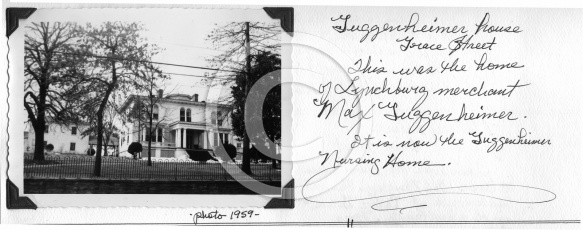 Guggenheimer house
Grace Street
This was the home
of Lynchburg merchant
Max Guggenheimer.
It is now the Guggenheimer
Nursing Home.
-photo 1959-
©